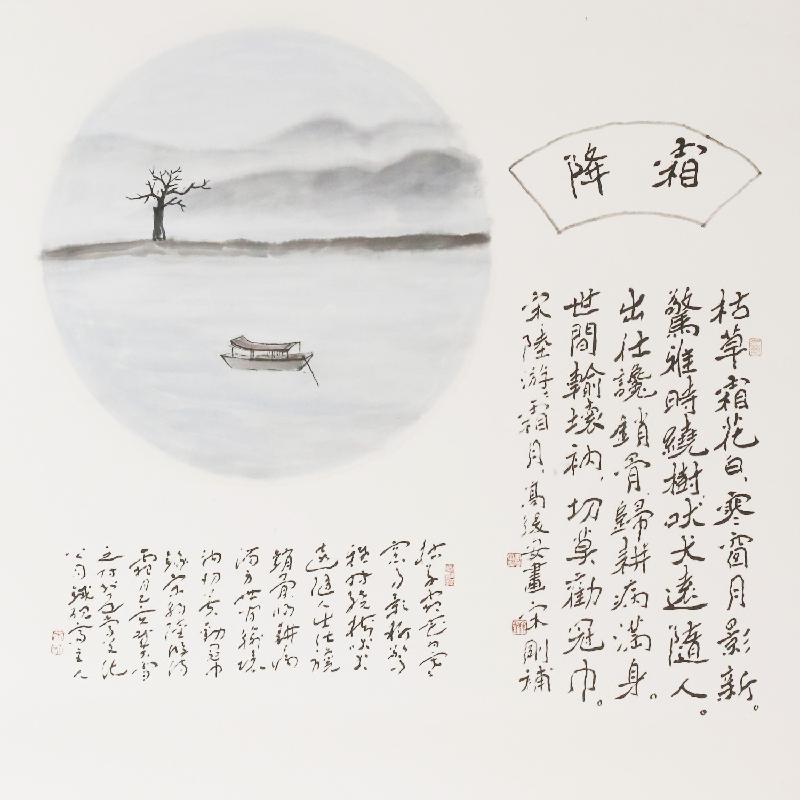 霜降
枯草霜花白、寒窗月影新。
驚雅時繞樹、吠犬遠隨人。
出仕讒銷骨、歸耕病滿身。
世間輸壞衲、切莫勸冠巾。
宋陸游、霜月、高畫宋剛補
枯草霜花白寒
窗月影新驚
雅時繞樹吠犬
遠隨人出仕讒
銷骨歸耕病
滿身世間輸壞
衲切莫勸冠巾
錄宋陸游詩
霜月
之時文化
公司鐵硯齋主人